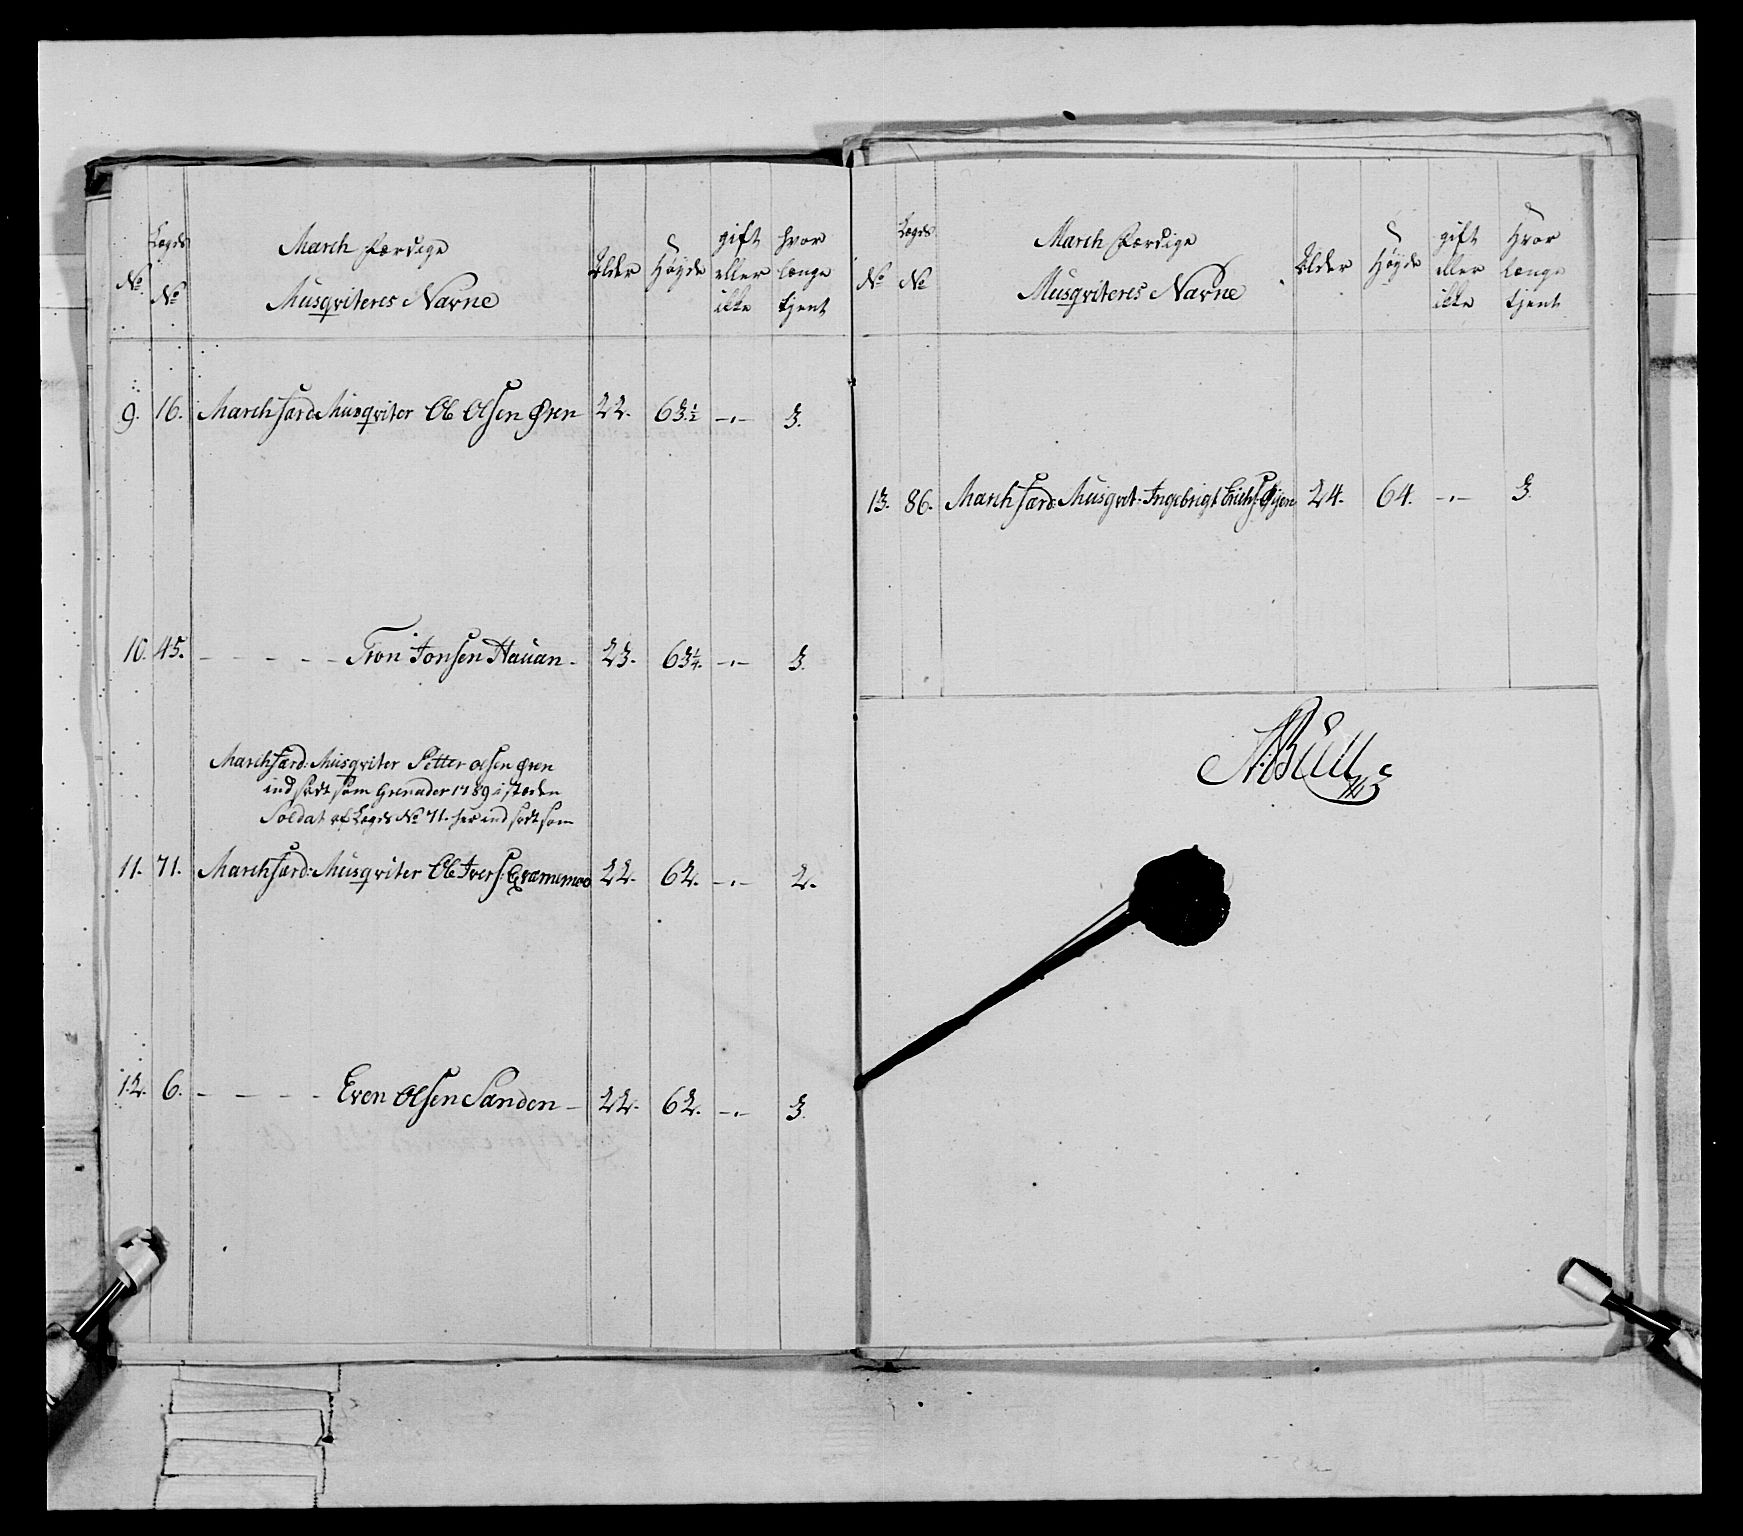 No. Legds No March færdige Musqviteres Navne Alder Høyde gift eller ikke hvor længe tjent
9. 16. March færd: Musqviter Ole Olsen Øren 22. 63½ -"- 3.
10. 45. - - - - - Tron Jonsen Hauan - 23. 63¼. -"- 3.
March færd: Musqviter Petter Olsen Øren
indført som Grenader 1789 i stæden
Soldat af Legds No 71. her indført som
11. 71. March færd: Musqviter Ole Ivers: 22. 62. -"- 2.
12. 6. - - - - Even Olsen Sanden - 22. 62. -"- 3.
No Legds No March færdige Musqviteres Navne Alder Høyde gift eller ikke Hvor længe tjent
13. 86. March færd: Musqvit: Ingebrigt Erichs: Øyen 24. 64. -"- 3.
Bull